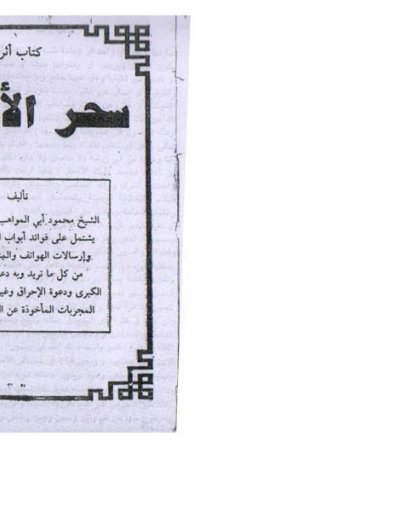 كتاب أثر
سحر الأ
تأليف
الشيخ محمود أبي المواهب
يشتمل على فوائد أبواب ا
وإرسالات الهواتف والم
من كل ما تريد وبه دع
الكبرى ودعوة الإحراق وغير
المجربات المأخوذة عن ال